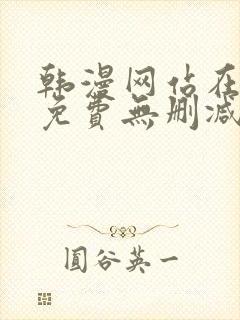 韩漫网站在
免費無删减
圓谷英一